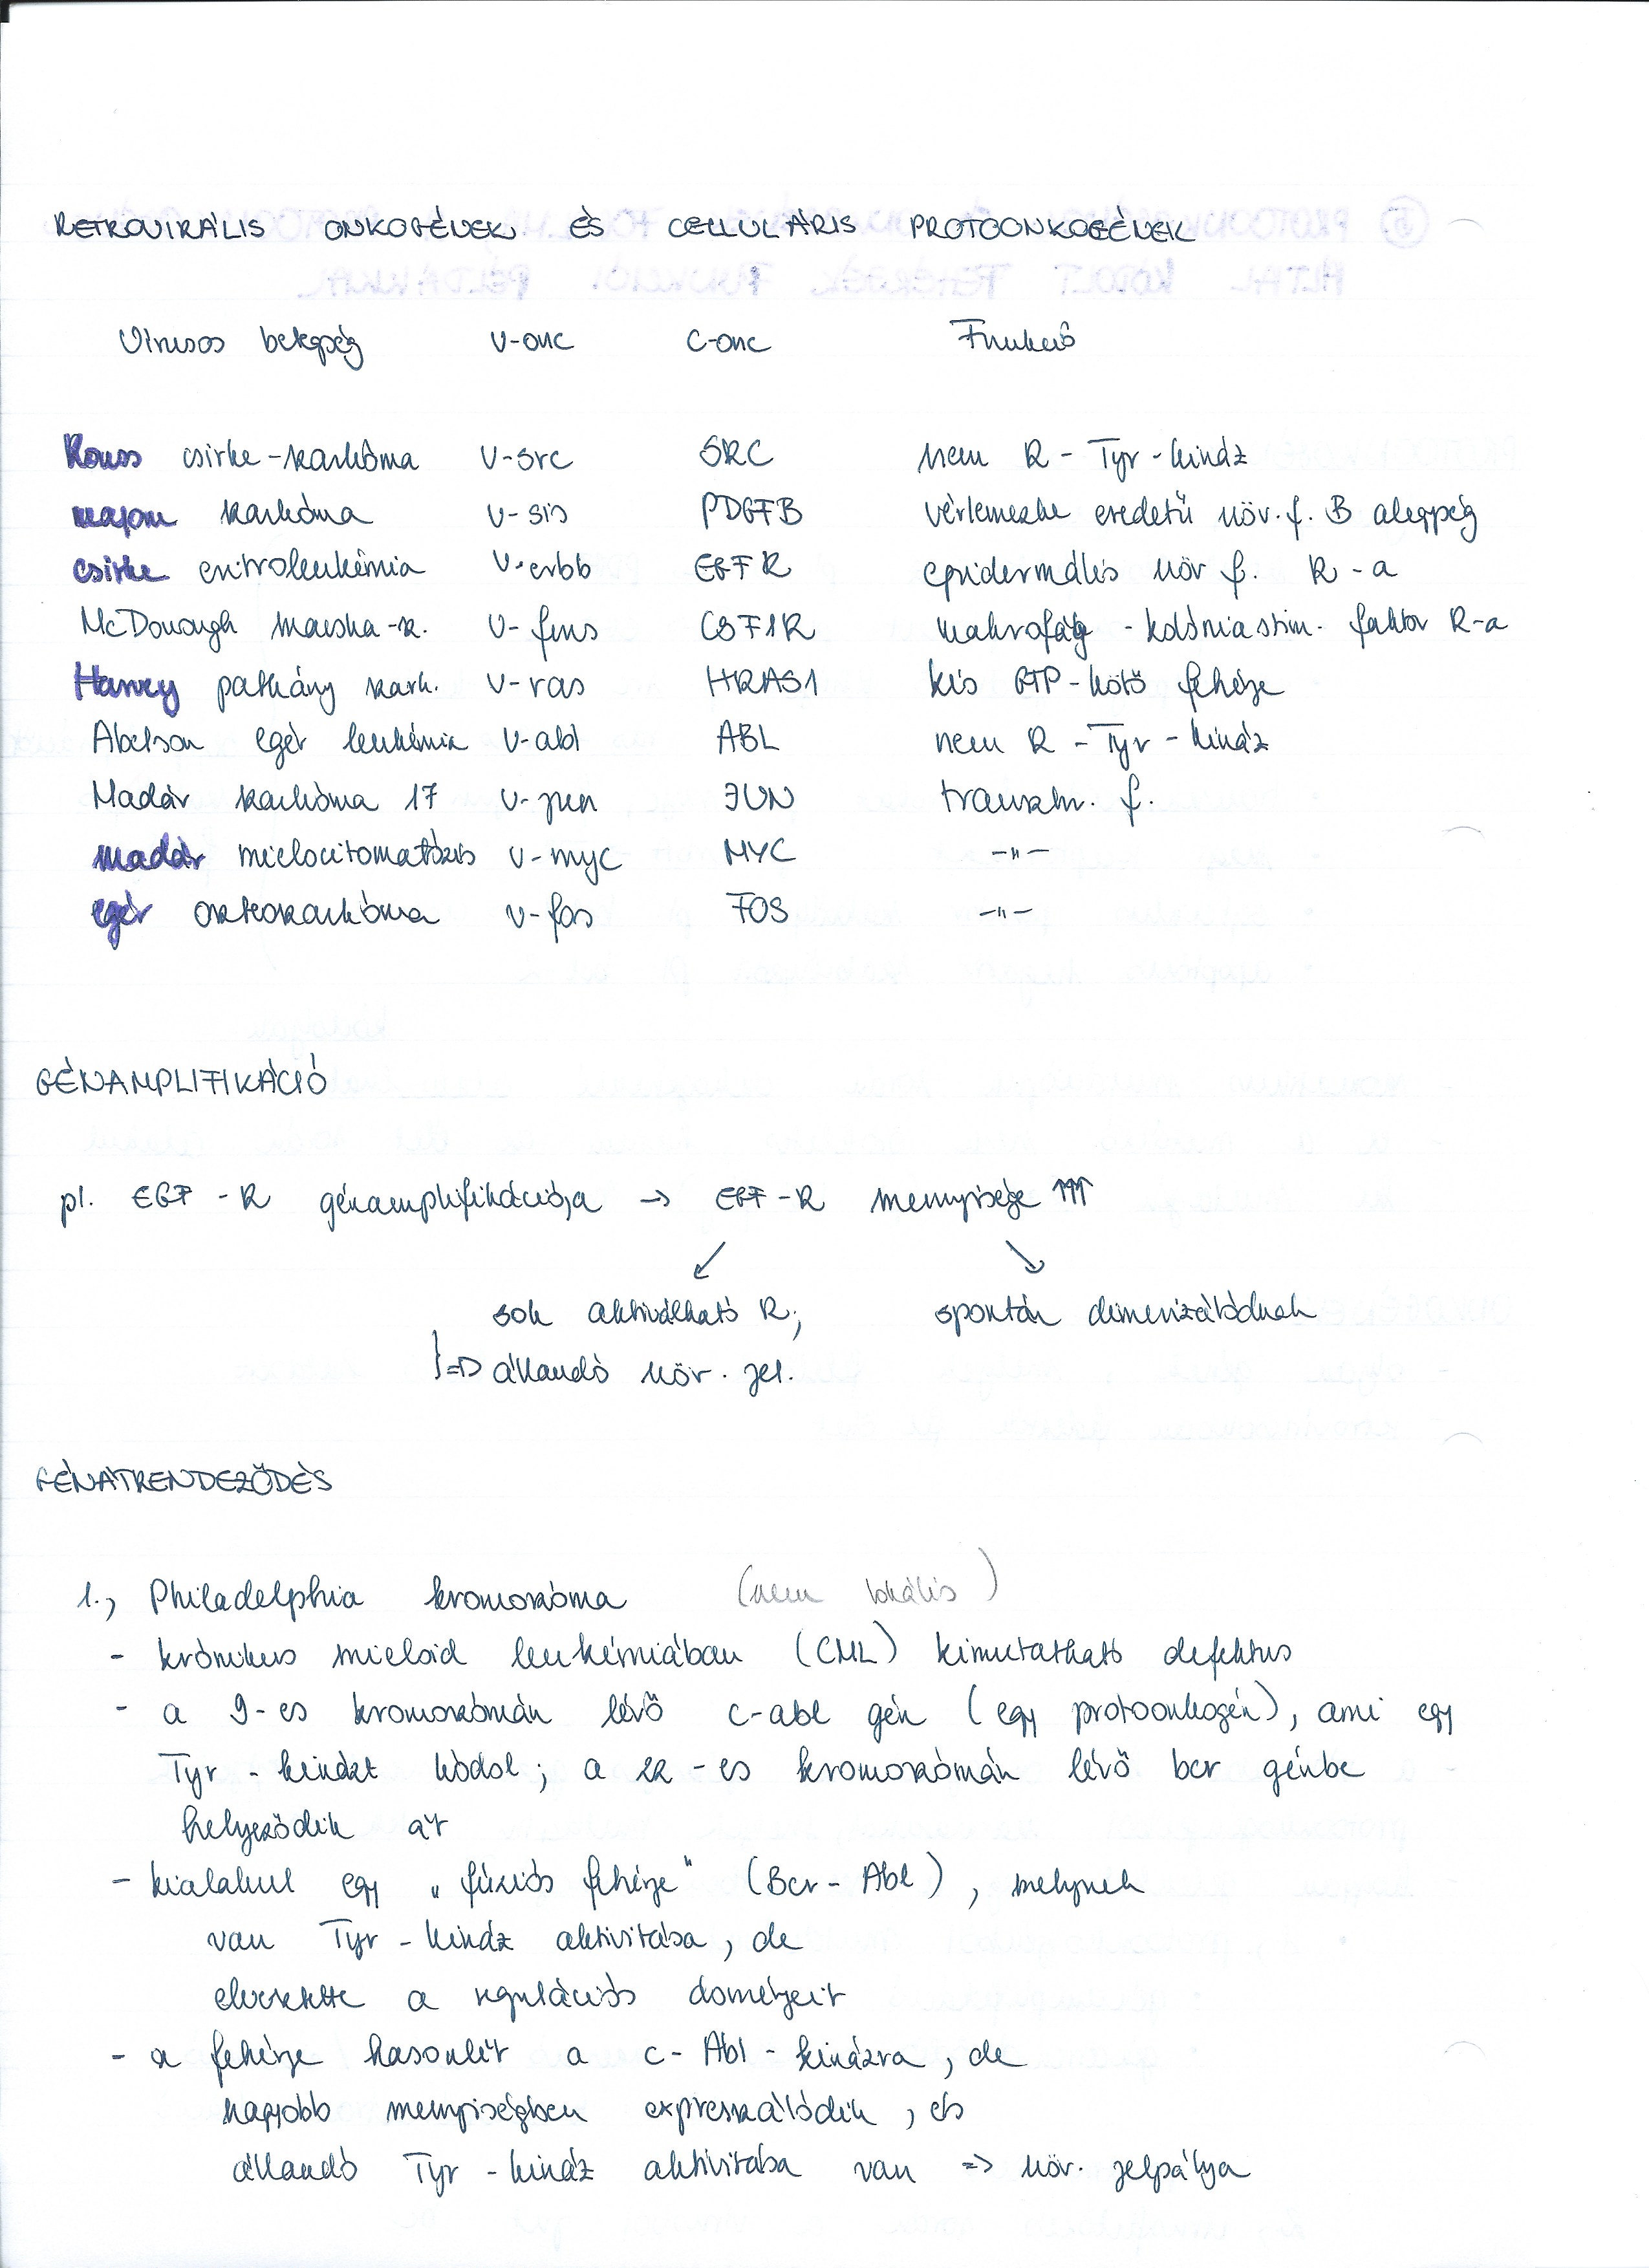 RETROVIRÁLIS ONKOGÉNEK ÉS CELLULÁRIS PROTOONKOGÉNEK
Vírusos betegség v-onc c-onc Funkció
Rouss csirke-szarkóma v-src SRC nem R-Tyr-kináz
majom szarkóma v-sis PDGFB vérlemezke eredetű növ.f. B alegység
csirke eritroleukémia v-erbb EGFR epidermális növ f. R-a
McDonough macska-sz. v-fms CSF1R makrofág-kolóniastim. faktor R-a
Harvey patkány szark. v-ras HRAS1 kis GTP-kötő fehérje
Abelson egér leukémia v-abl ABL nem R-Tyr-kináz
Madár szarkóma 17 v-jun JUN transzkr. f.
madár mielocitomatózis v-myc MYC -"-
egér oszteoszarkóma v-fos FOS -"-
GÉNAMPLIFIKÁCIÓ
pl. EGF-R génamplifikációja → EGF-R mennyisége ↑↑↑
↙ ↘
sok aktiválható R; spontán dimerizálódnak
}⇒ állandó növ. jel.
GÉNÁTRENDEZŐDÉS
1., Philadelphia kromoszóma (nem lokális)
- krónikus mieloid leukémiában (CML) kimutatható defektus
- a 9-es kromoszómán lévő c-abl gén (egy protoonkogén), ami egy
Tyr-kinázt kódol; a 22-es kromoszómán lévő bcr génbe
helyeződik át
- kialakul egy „fúziós fehérje" (Bcr-Abl), melynek
van Tyr-kináz aktivitása, de
elvesztette a regulációs doménjeit
- a fehérje hasonlít a c-Abl-kinázra, de
nagyobb mennyiségben expresszálódik, és
állandó Tyr-kináz aktivitása van ⇒ növ. jelpálya